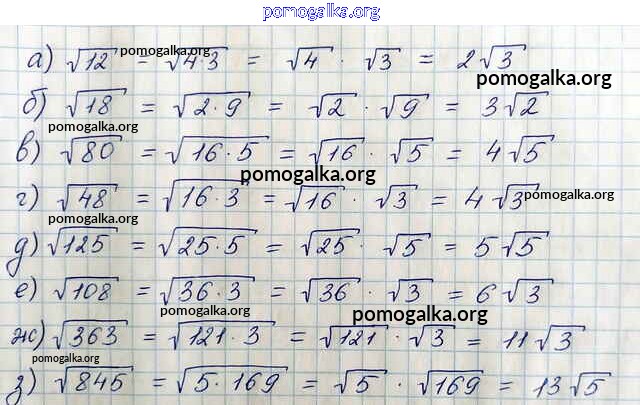 pomogalka.org
а) √12 = √4·3 = √4 · √3 = 2√3
pomogalka.org
pomogalka.org
б) √18 = √2·9 = √2 · √9 = 3√2
pomogalka.org
в) √80 = √16·5 = √16 · √5 = 4√5
pomogalka.org
г) √48 = √16·3 = √16 · √3 = 4√3
pomogalka.org
pomogalka.org
д) √125 = √25·5 = √25 · √5 = 5√5
е) √108 = √36·3 = √36 · √3 = 6√3
pomogalka.org
pomogalka.org
ж) √363 = √121·3 = √121 · √3 = 11√3
pomogalka.org
з) √845 = √5·169 = √5 · √169 = 13√5